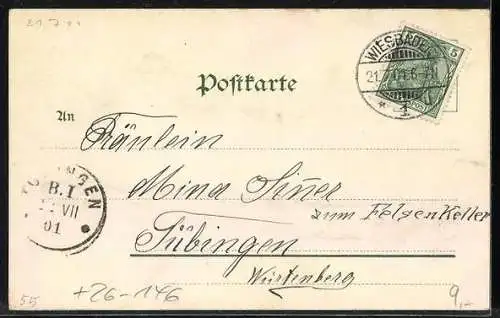 21.7 01
WIESBADEN
5
21.7.01.6-7N
1
Postkarte
An
Fräulein
Mina Siner
zum Felsenkeller
Tübingen
Würtenberg
TÜBINGEN
B.I
VII
01
55
+26-146
9,-